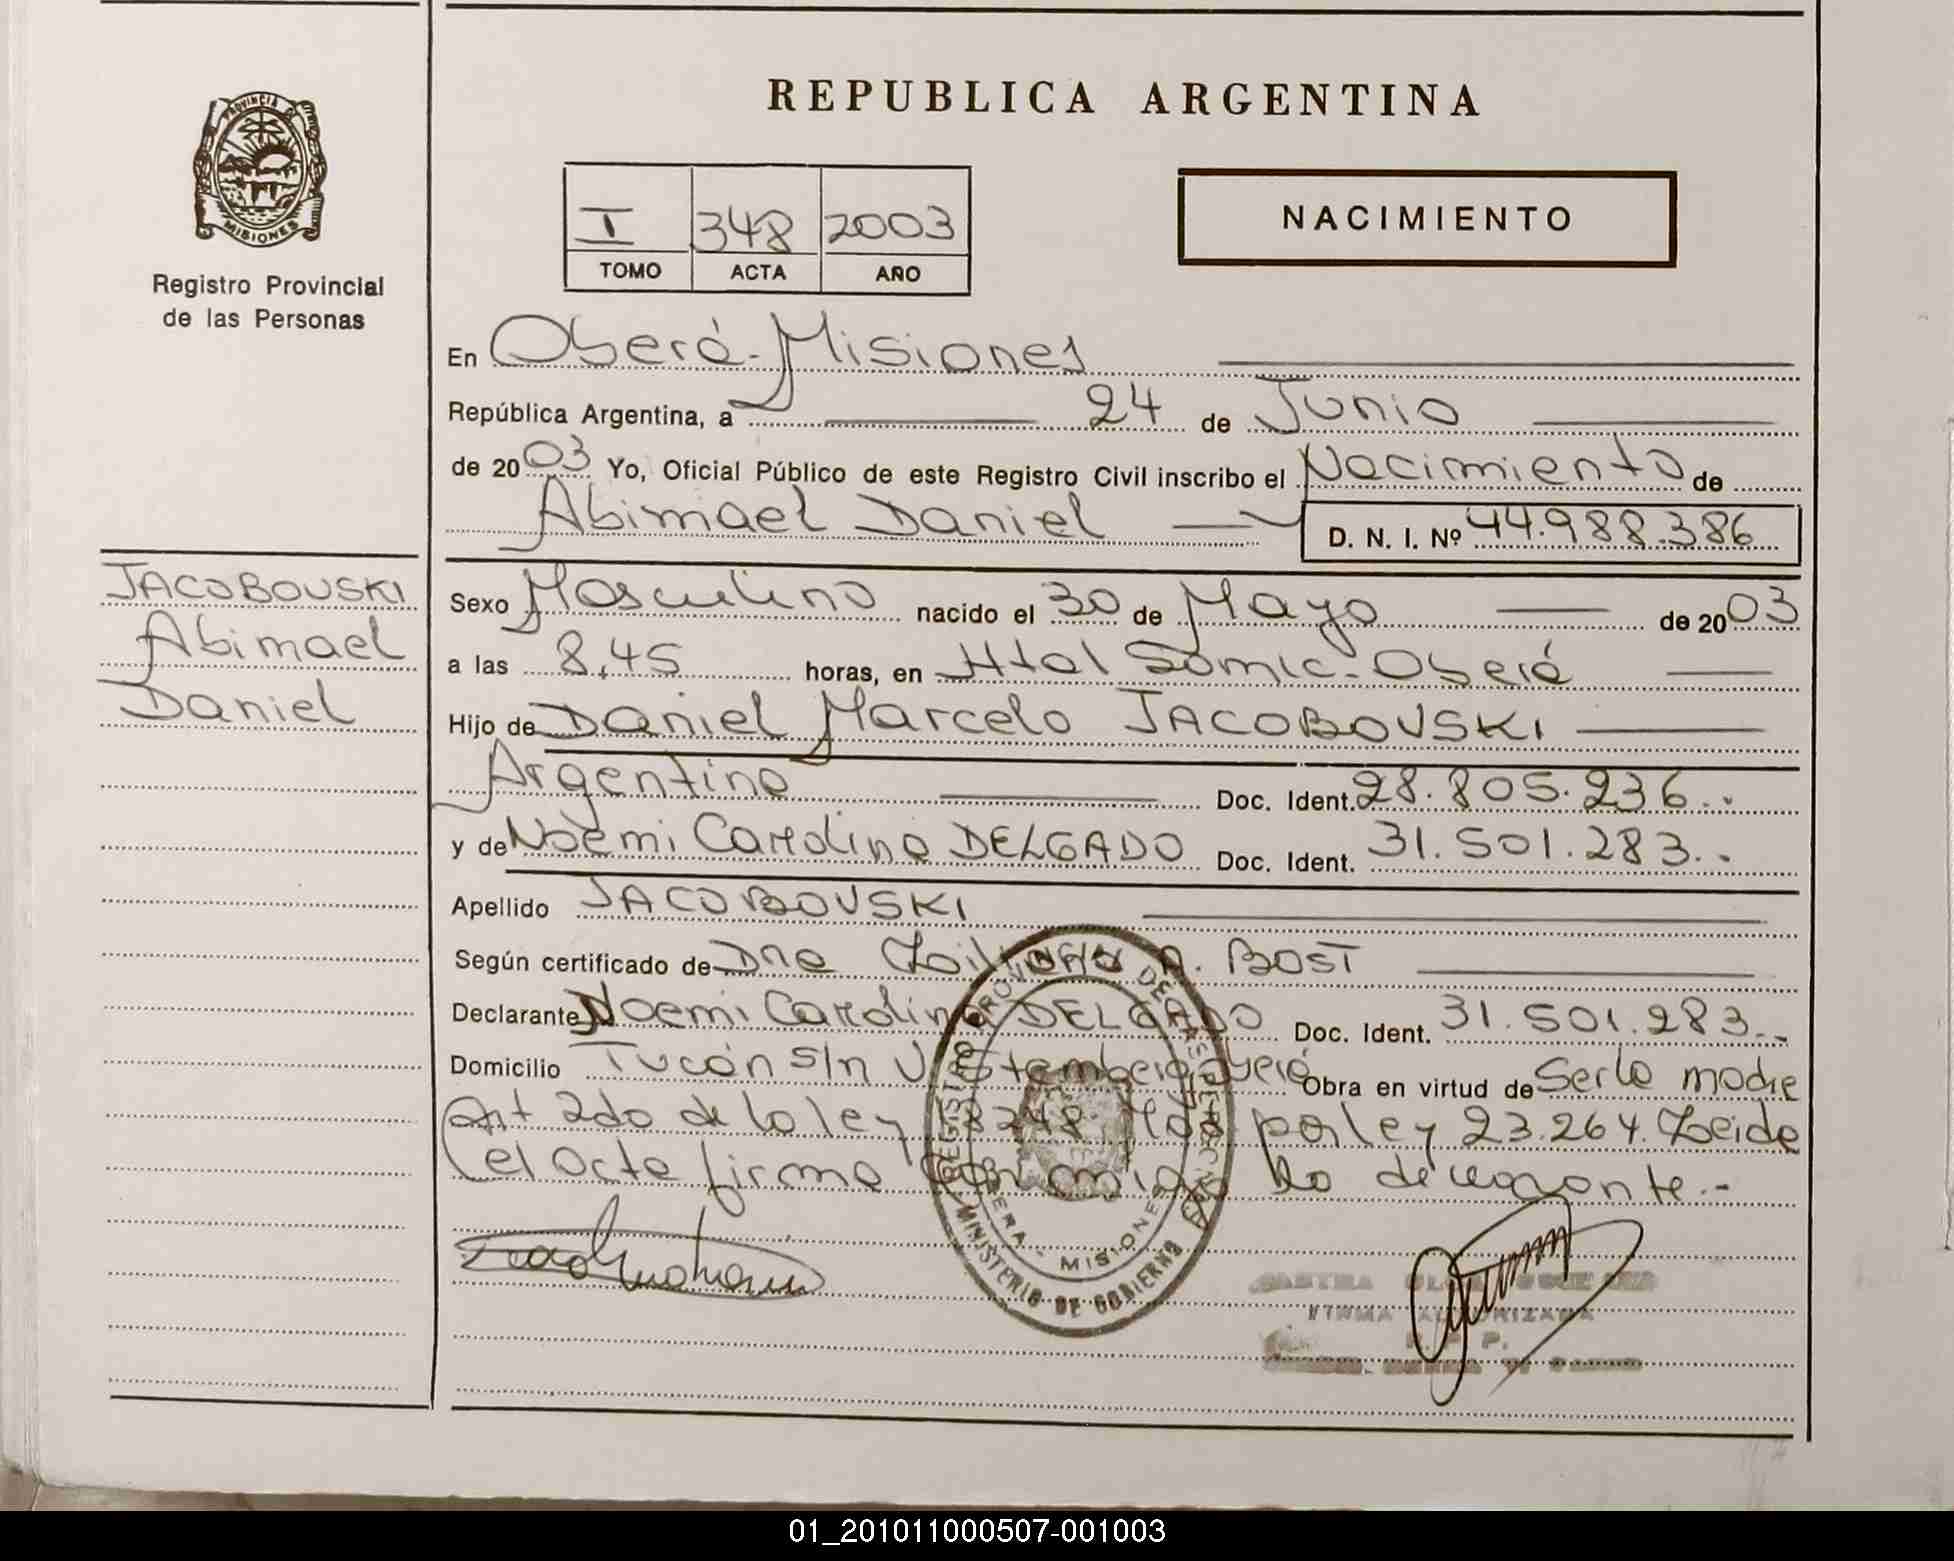 REPUBLICA ARGENTINA
PROVINCIA DE
MISIONES
Registro Provincial
de las Personas
I 348 2003
TOMO ACTA AÑO
NACIMIENTO
En Oberá-Misiones
República Argentina, a 24 de Junio
de 2003 Yo, Oficial Público de este Registro Civil inscribo el Nacimiento de
Abimael Daniel D. N. I. Nº 44.988.386
JACOBOVSKI
Abimael
Daniel
Sexo Masculino nacido el 30 de Mayo de 2003
a las 8,45 horas, en Htal Samic-Oberá
Hijo de Daniel Marcelo JACOBOVSKI
Argentino Doc. Ident. 28.805.236..
y de Noemi Carolina DELGADO Doc. Ident. 31.501.283..
Apellido JACOBOVSKI
Según certificado de Dra A. BOST
Declarante Noemi Carolina DELGADO Doc. Ident. 31.501.283..
Domicilio Tucán s/n V. Obra en virtud de Ser la madre
Art 2do de la ley 18248 por ley 23.264. Leida
el acta firma conmigo la declarante.-
REGISTRO PROVINCIAL DE LAS PERSONAS
MISIONES
MINISTERIO DE GOBIERNO
FIRMA AUTORIZADA
R. P. P.
01_201011000507-001003